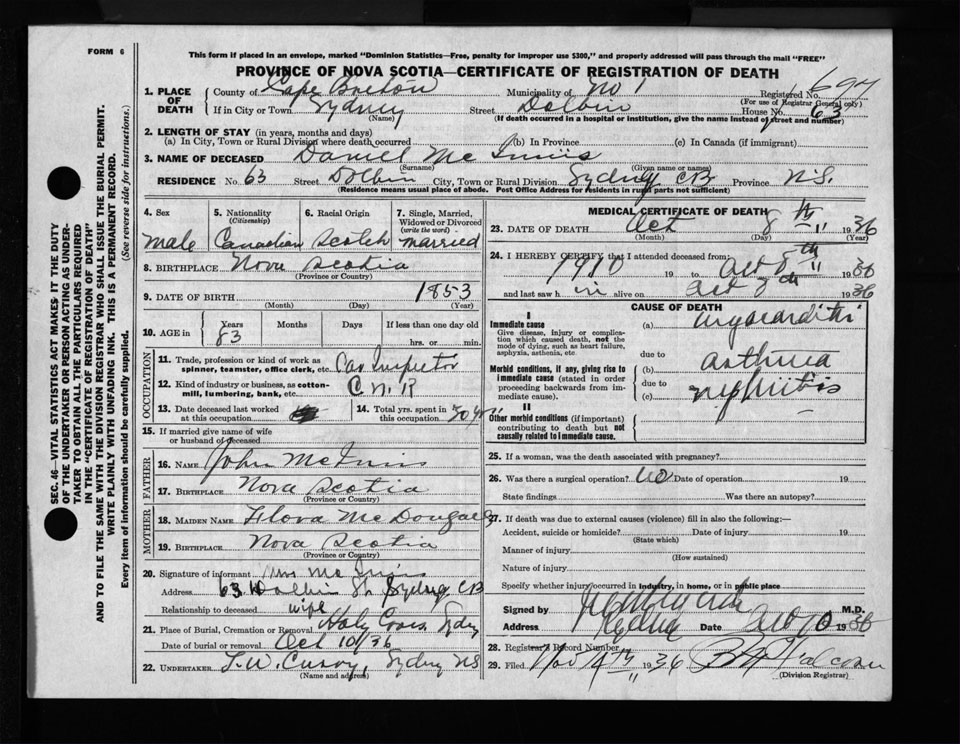 FORM 6
This form if placed in an envelope, marked "Dominion Statistics—Free, penalty for improper use $300," and properly addressed will pass through the mail "FREE"
PROVINCE OF NOVA SCOTIA—CERTIFICATE OF REGISTRATION OF DEATH
1. PLACE OF DEATH
County of Cape Breton Municipality of No 1 Registered No. 694
(For use of Registrar General only)
If in City or Town Sydney Street Dolbin House No. 63
(Name) (If death occurred in a hospital or institution, give the name instead of street and number)
2. LENGTH OF STAY (in years, months and days)
(a) In City, Town or Rural Division where death occurred (b) In Province (c) In Canada (if immigrant)
3. NAME OF DECEASED Daniel McInnis
(Surname) (Given name or names)
RESIDENCE No. 63 Street Dolbin City, Town or Rural Division Sydney CB Province N.S.
(Residence means usual place of abode. Post Office Address for residents in rural parts not sufficient)
4. Sex
male
5. Nationality
(Citizenship)
Canadian
6. Racial Origin
Scotch
7. Single, Married, Widowed or Divorced
(write the word)
married
8. BIRTHPLACE Nova Scotia
(Province or Country)
9. DATE OF BIRTH 1853
(Month) (Day) (Year)
10. AGE in Years Months Days If less than one day old
83 hrs. or min.
OCCUPATION
11. Trade, profession or kind of work as spinner, teamster, office clerk, etc. Car Inspector
12. Kind of industry or business, as cotton-mill, lumbering, bank, etc. C N R
13. Date deceased last worked at this occupation
14. Total yrs. spent in this occupation
15. If married give name of wife or husband of deceased
FATHER
16. NAME John McInnis
17. BIRTHPLACE Nova Scotia
(Province or Country)
MOTHER
18. MAIDEN NAME Flora McDougall
19. BIRTHPLACE Nova Scotia
(Province or Country)
20. Signature of informant Mrs McInnis
Address 63 Dolbin St. Sydney CB
Relationship to deceased wife
21. Place of Burial, Cremation or Removal Holy Cross Sydney
Date of burial or removal Oct 10/36
22. UNDERTAKER T.W. Curry, Sydney NS
(Name and address)
MEDICAL CERTIFICATE OF DEATH
23. DATE OF DEATH Oct 8th 1936
(Month) (Day) (Year)
24. I HEREBY CERTIFY that I attended deceased from:
1910 19 to Oct 8th 1936
and last saw h im alive on Oct 8th 1936
CAUSE OF DEATH
I
Immediate cause
Give disease, injury or complication which caused death, not the mode of dying, such as heart failure, asphyxia, asthenia, etc
(a) Myocarditis
due to
Morbid conditions, if any, giving rise to immediate cause (stated in order proceeding backwards from immediate cause).
(b) asthma
due to
(c) nephritis
II
Other morbid conditions (if important) contributing to death but not causally related to immediate cause.
25. If a woman, was the death associated with pregnancy?
26. Was there a surgical operation? no Date of operation 19
State findings Was there an autopsy?
27. If death was due to external causes (violence) fill in also the following:—
Accident, suicide or homicide? Date of injury 19
(State which)
Manner of injury
(How sustained)
Nature of injury
Specify whether injury occurred in industry, in home, or in public place
Signed by M.D.
Address Sydney Date Oct 10 1936
28. Registrar's Record Number
29. Filed Nov 4th 1936
(Division Registrar)
SEC. 46—VITAL STATISTICS ACT MAKES IT THE DUTY
OF THE UNDERTAKER OR PERSON ACTING AS UNDERTAKER TO OBTAIN ALL THE PARTICULARS REQUIRED
IN THE "CERTIFICATE OF REGISTRATION OF DEATH"
AND TO FILE THE SAME WITH THE DIVISION REGISTRAR WHO SHALL ISSUE THE BURIAL PERMIT.
WRITE PLAINLY WITH UNFADING INK. THIS IS A PERMANENT RECORD.
Every item of information should be carefully supplied. (See reverse side for instructions.)